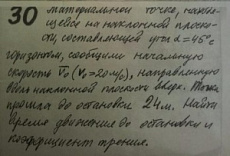 30 материальной точке, находя-
щейся на наклонной плоско-
сти, составляющей угол α=45° с
горизонтом, сообщили начальную
скорость V₀ (V₀=20 м/с), направленную
вдоль наклонной плоскости вверх. Точка
прошла до остановки 24 м. Найти
время движения до остановки и
коэффициент трения.